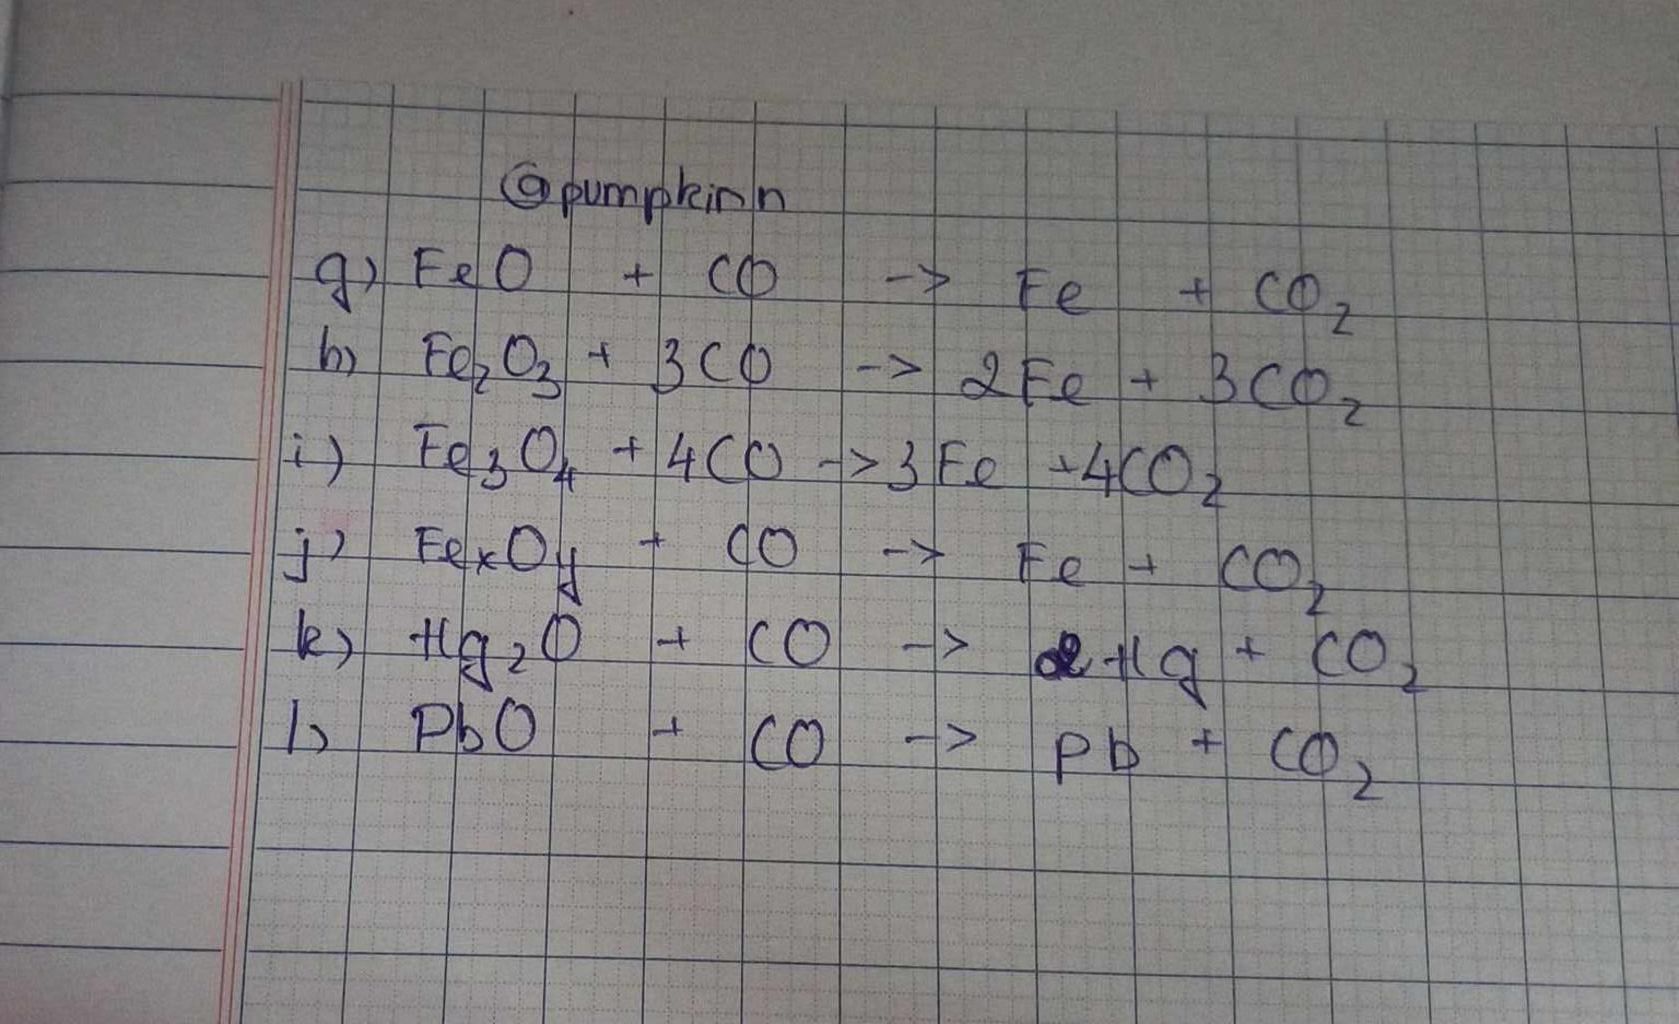 @pumpkinn
g) FeO + CO -> Fe + CO₂
h) Fe₂O₃ + 3CO -> 2Fe + 3CO₂
i) Fe₃O₄ + 4CO -> 3Fe + 4CO₂
j) FexOy + CO -> Fe + CO₂
k) Hg₂O + CO -> 2Hg + CO₂
l) PbO + CO -> Pb + CO₂